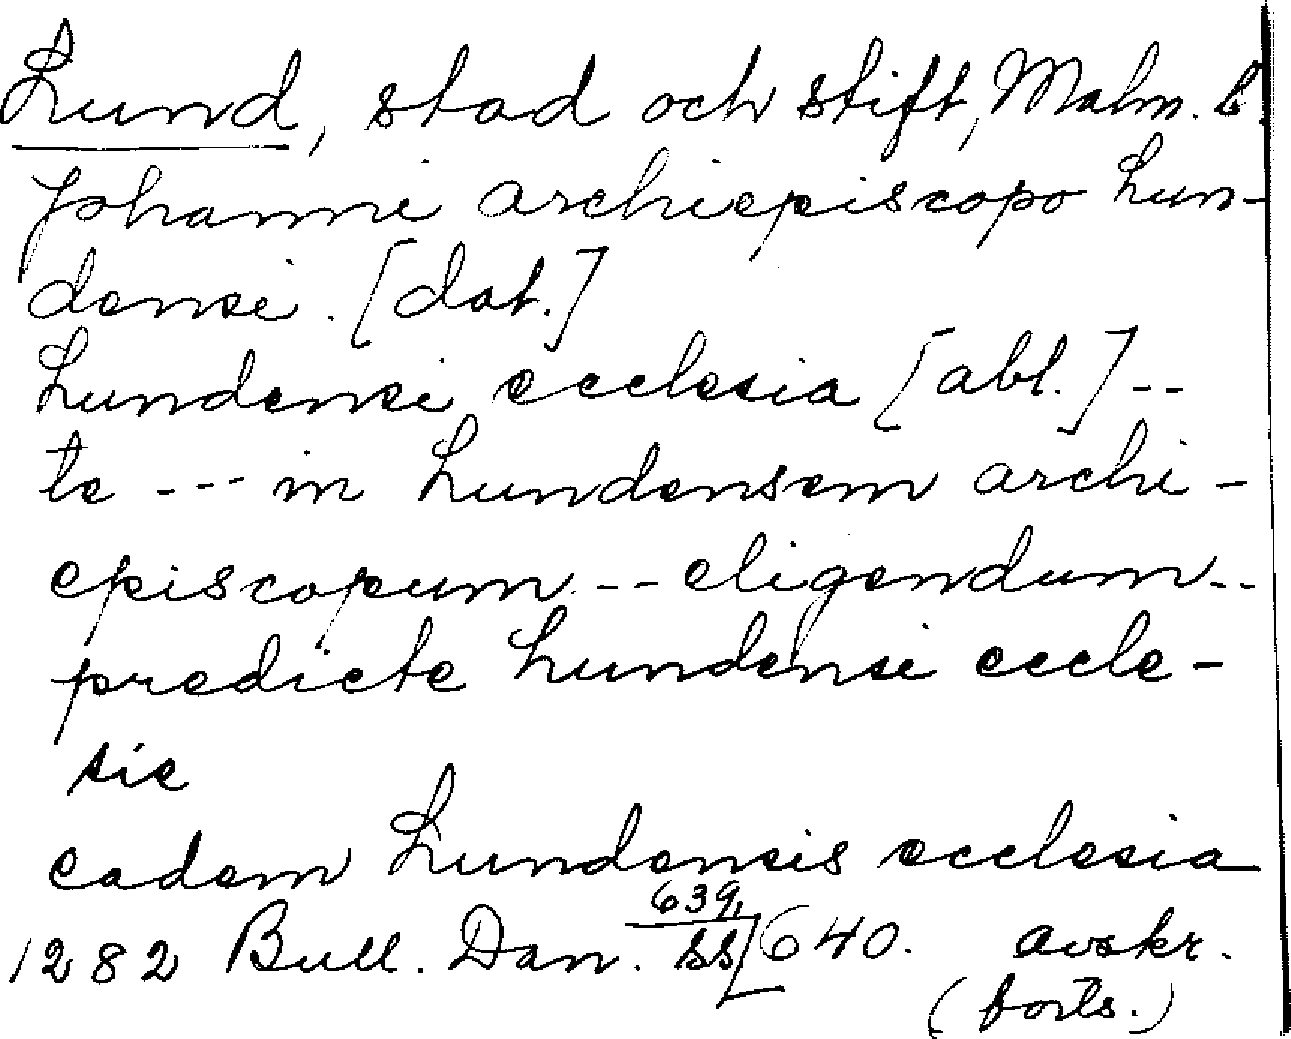 Lund, stad och stift, Malm. l.
Johanni archiepiscopo Lun-
densi. [dat.]
Lundensi ecclesia [abl.] --
te --- in Lundensem archi-
episcopum -- eligendum --
predicte Lundensi eccle-
sie
eadem Lundensis ecclesia
1282 Bull. Dan. 639, ss 640. avskr.
(forts.)